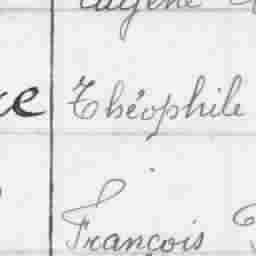 Eugène
Théophile
François